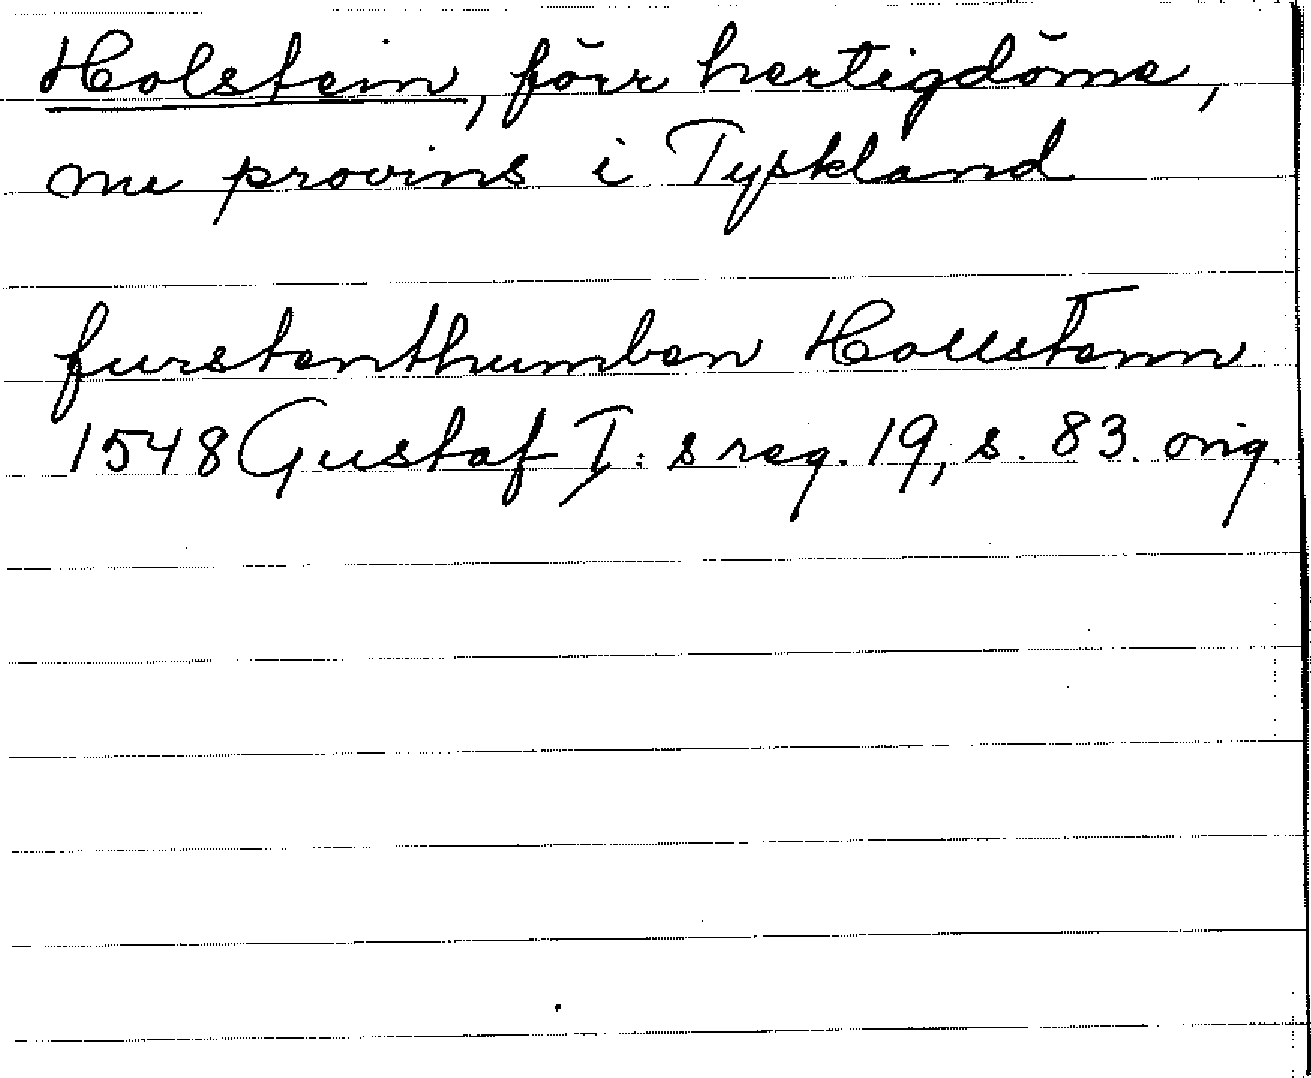 Holstein, förr hertigdöme,
nu provins i Tyskland
furstenthumben Hollstenn
1548 Gustaf I: s reg. 19, s. 83. orig.